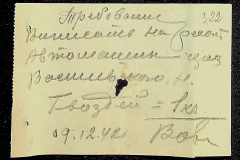 Требование 322
Выписать на ремонт
Автомашины ГАЗ
Васильевского н.
Гвоздей = 1 кг
19.12.42